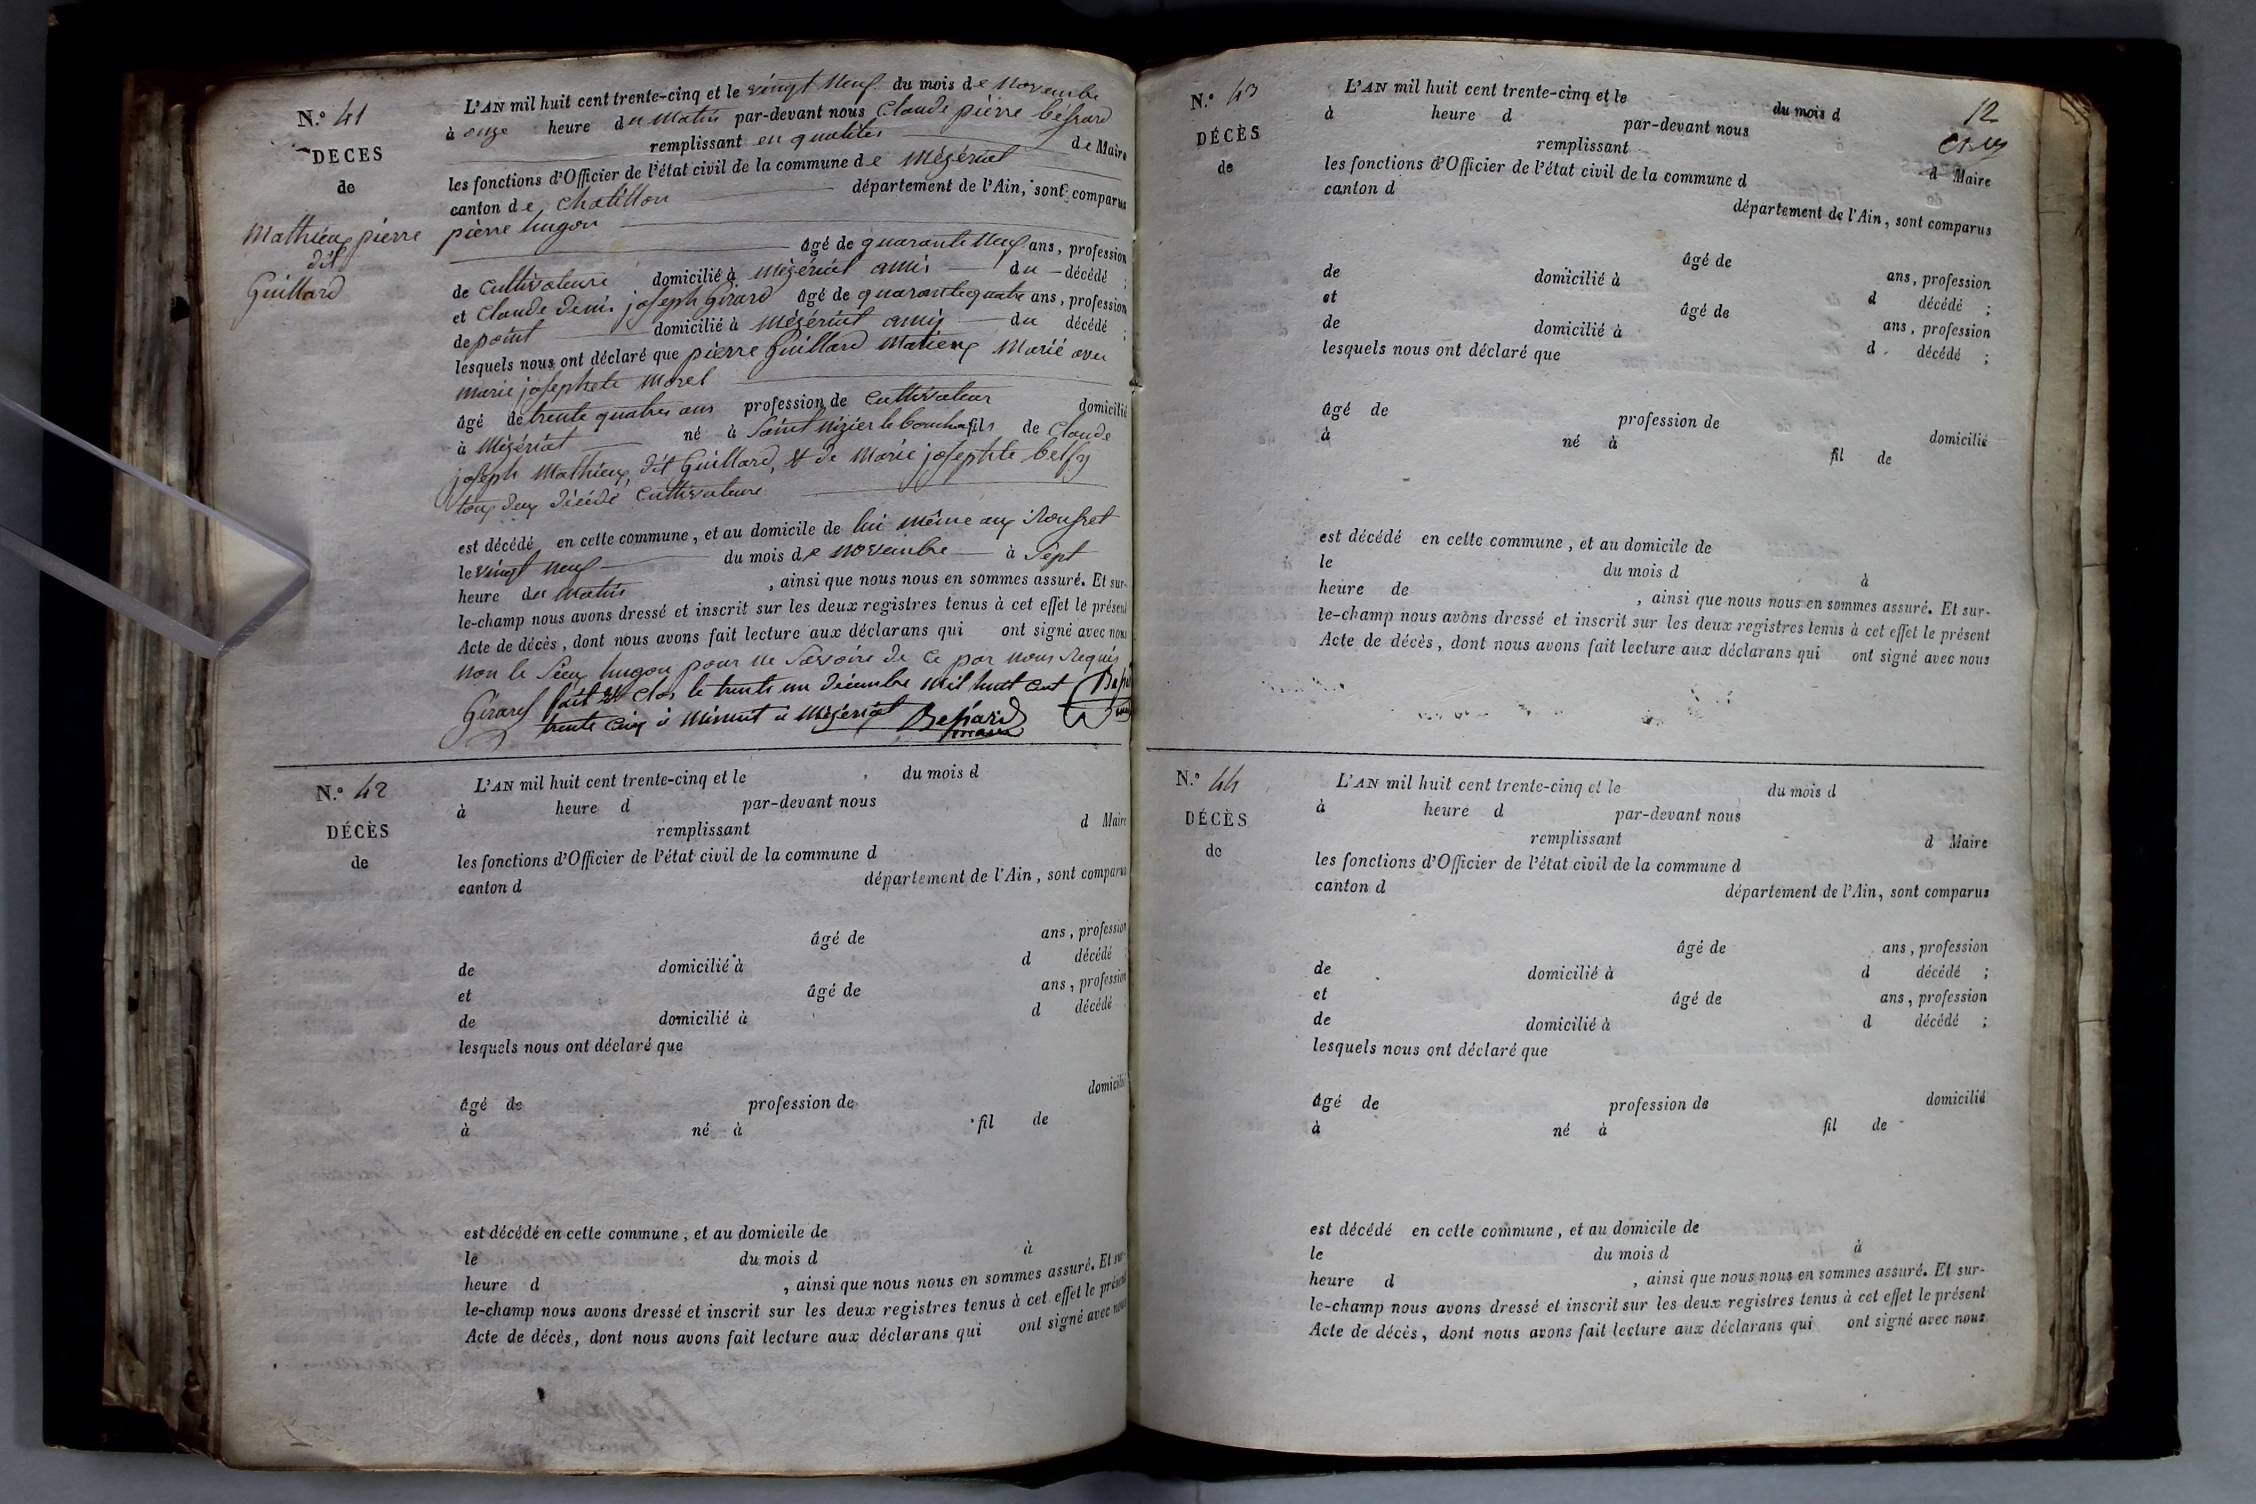 N.° 41
DÉCÈS
de
Mathieux pierre
dit
Guillard
L'AN mil huit cent trente-cinq et le vingt neuf du mois de Novembre
à onze heure du Matin par-devant nous Claude pierre
remplissant en qualités de Maire
les fonctions d'Officier de l'état civil de la commune de Mézériat
canton de Chatillon département de l'Ain, sont comparus
pierre hugon
âgé de quarante neuf ans, profession
de Cultivateure domicilié à Mézériat amis du décédé ;
et Claude Denis joseph Girard âgé de quarante quatre ans, profession
de domicilié à Mézériat amis du décédé ;
lesquels nous ont déclaré que pierre Guillard Matieux Marié avec
marie josephete Morel
âgé de trente quatres ans profession de Cultivateur domicilié
à Mézériat né à Saint Nizier le fils de Claude
joseph Mathieux, dit Guillard, & de Marie josephte
tous deux décédé Cultivateure
est décédé en cette commune, et au domicile de lui même aux
le vingt neuf du mois de novembre à Sept
heure du Matin, ainsi que nous nous en sommes assuré. Et sur-
le-champ nous avons dressé et inscrit sur les deux registres tenus à cet effet le présent
Acte de décès, dont nous avons fait lecture aux déclarans qui ont signé avec nous
non le Sieux hugon pour ne Savoire de ce par nous Requis
Girard fait & clos le trente un décembre mil huit cent
trente cinq à Minuit à Mézériat
maire
N.° 42
DÉCÈS
de
L'AN mil huit cent trente-cinq et le du mois d
à heure d par-devant nous
remplissant d Maire
les fonctions d'Officier de l'état civil de la commune d
canton d département de l'Ain, sont comparus
âgé de ans, profession
de domicilié à d décédé
et âgé de ans, profession
de domicilié à d décédé
lesquels nous ont déclaré que
âgé de profession de domicilié
à né à fil de
est décédé en cette commune, et au domicile de
le du mois d à
heure d , ainsi que nous nous en sommes assuré. Et sur-
le-champ nous avons dressé et inscrit sur les deux registres tenus à cet effet le présent
Acte de décès, dont nous avons fait lecture aux déclarans qui ont signé avec nous
12
N.° 43
DÉCÈS
de
L'AN mil huit cent trente-cinq et le du mois d
à heure d par-devant nous
remplissant d Maire
les fonctions d'Officier de l'état civil de la commune d
canton d département de l'Ain, sont comparus
âgé de ans, profession
de domicilié à d décédé ;
et âgé de ans, profession
de domicilié à d décédé ;
lesquels nous ont déclaré que
âgé de profession de domicilié
à né à fil de
est décédé en cette commune, et au domicile de
le du mois d à
heure de , ainsi que nous nous en sommes assuré. Et sur-
le-champ nous avons dressé et inscrit sur les deux registres tenus à cet effet le présent
Acte de décès, dont nous avons fait lecture aux déclarans qui ont signé avec nous
N.° 44
DÉCÈS
de
L'AN mil huit cent trente-cinq et le du mois d
à heure d par-devant nous
remplissant d Maire
les fonctions d'Officier de l'état civil de la commune d
canton d département de l'Ain, sont comparus
âgé de ans, profession
de domicilié à d décédé ;
et âgé de ans, profession
de domicilié à d décédé ;
lesquels nous ont déclaré que
âgé de profession de domicilié
à né à fil de
est décédé en cette commune, et au domicile de
le du mois d à
heure d , ainsi que nous nous en sommes assuré. Et sur-
le-champ nous avons dressé et inscrit sur les deux registres tenus à cet effet le présent
Acte de décès, dont nous avons fait lecture aux déclarans qui ont signé avec nous